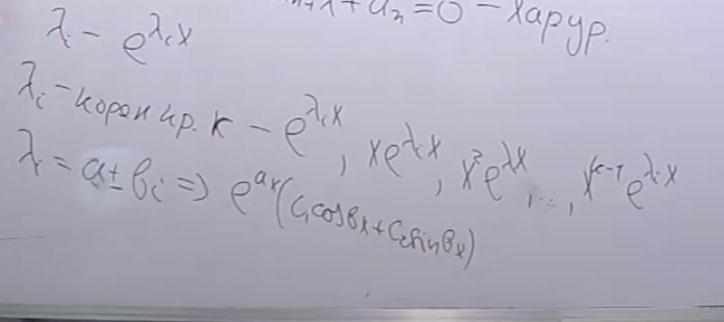 λ + aₙ = 0 – хар ур.
λᵢ – e^{λᵢx}
λᵢ – корен кр. k – e^{λᵢx}, xe^{λᵢx}, x²e^{λx}, ..., x^{k-1}e^{λᵢx}
λ = a ± bi ⇒ e^{ax}(C₁cosbx + C₂sinbx)